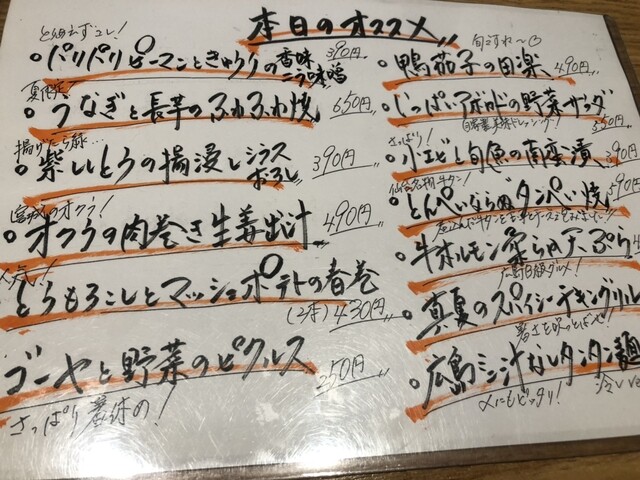 本日のオススメ
とりあえずコレ!
パリパリピーマンときゅうりの香味ニラ味噌
390円
夏限定!
うなぎと長芋のふわふわ焼
650円
揚げたら緑…
紫ししとうの揚浸し シラスおろし
390円
宮城のオクラ!
オクラの肉巻き生姜出汁
490円
人気!
とうもろこしとマッシュポテトの春巻
(2本) 430円
ゴーヤと野菜のピクルス
350円
さっぱり箸休め!
旬ですね〜
鴨茄子の田楽
490円
いっぱいアボカドの野菜サラダ
自家製ドレッシング!
550円
さっぱり!
小エビと旬魚の南蛮漬
390円
仙台名物牛タン!
とんぺいならぬタンぺい焼
590円
牛ホルモン柔らか天ぷら
広島B級グルメ!
真夏のスパイシーチキングリル
暑さを吹っとばせ!
広島シン汁なしタンタン麺
〆にもピッタリ!